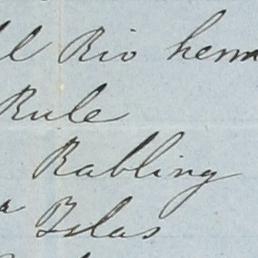 del Rio herm
Rule
Rabling
Islas